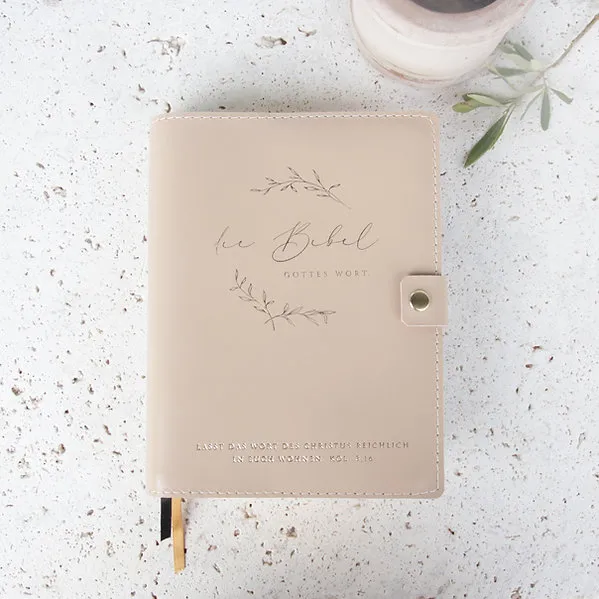 die Bibel
GOTTES WORT.
LASST DAS WORT DES CHRISTUS REICHLICH
IN EUCH WOHNEN. KOL. 3,16